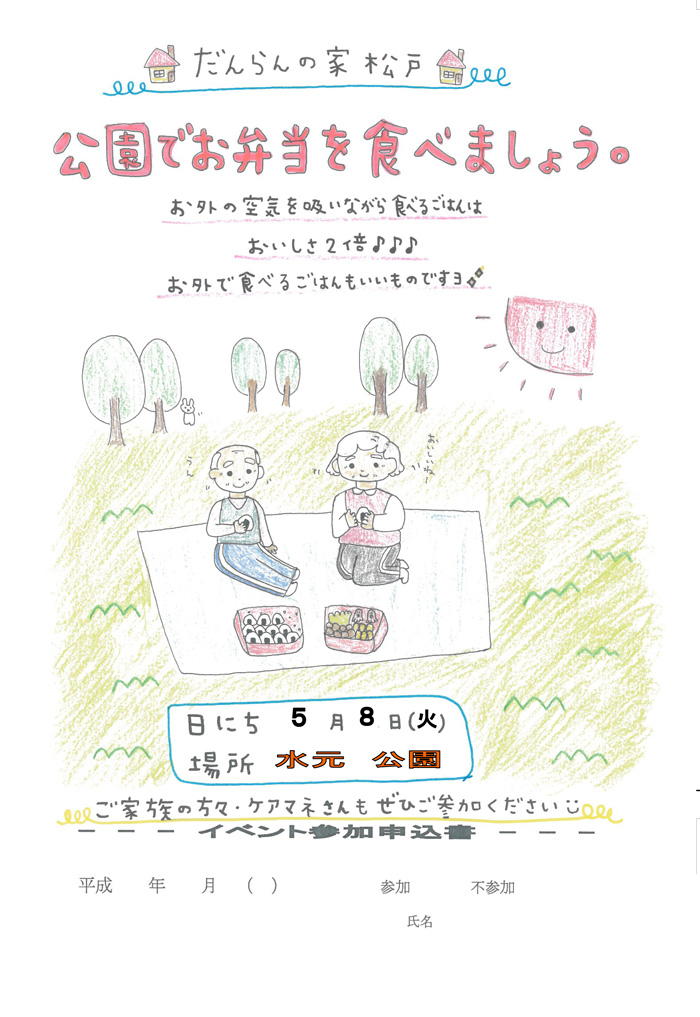 だんらんの家 松戸
公園でお弁当を食べましょう。
お外の空気を吸いながら食べるごはんは
おいしさ2倍♪♪♪
お外で食べるごはんもいいものですヨ
うん
おいしいね〜
日にち 5月8日(火)
場所 水元 公園
ご家族の方々・ケアマネさんもぜひご参加ください
イベント参加申込書
平成 年 月 ( ) 参加 不参加
氏名